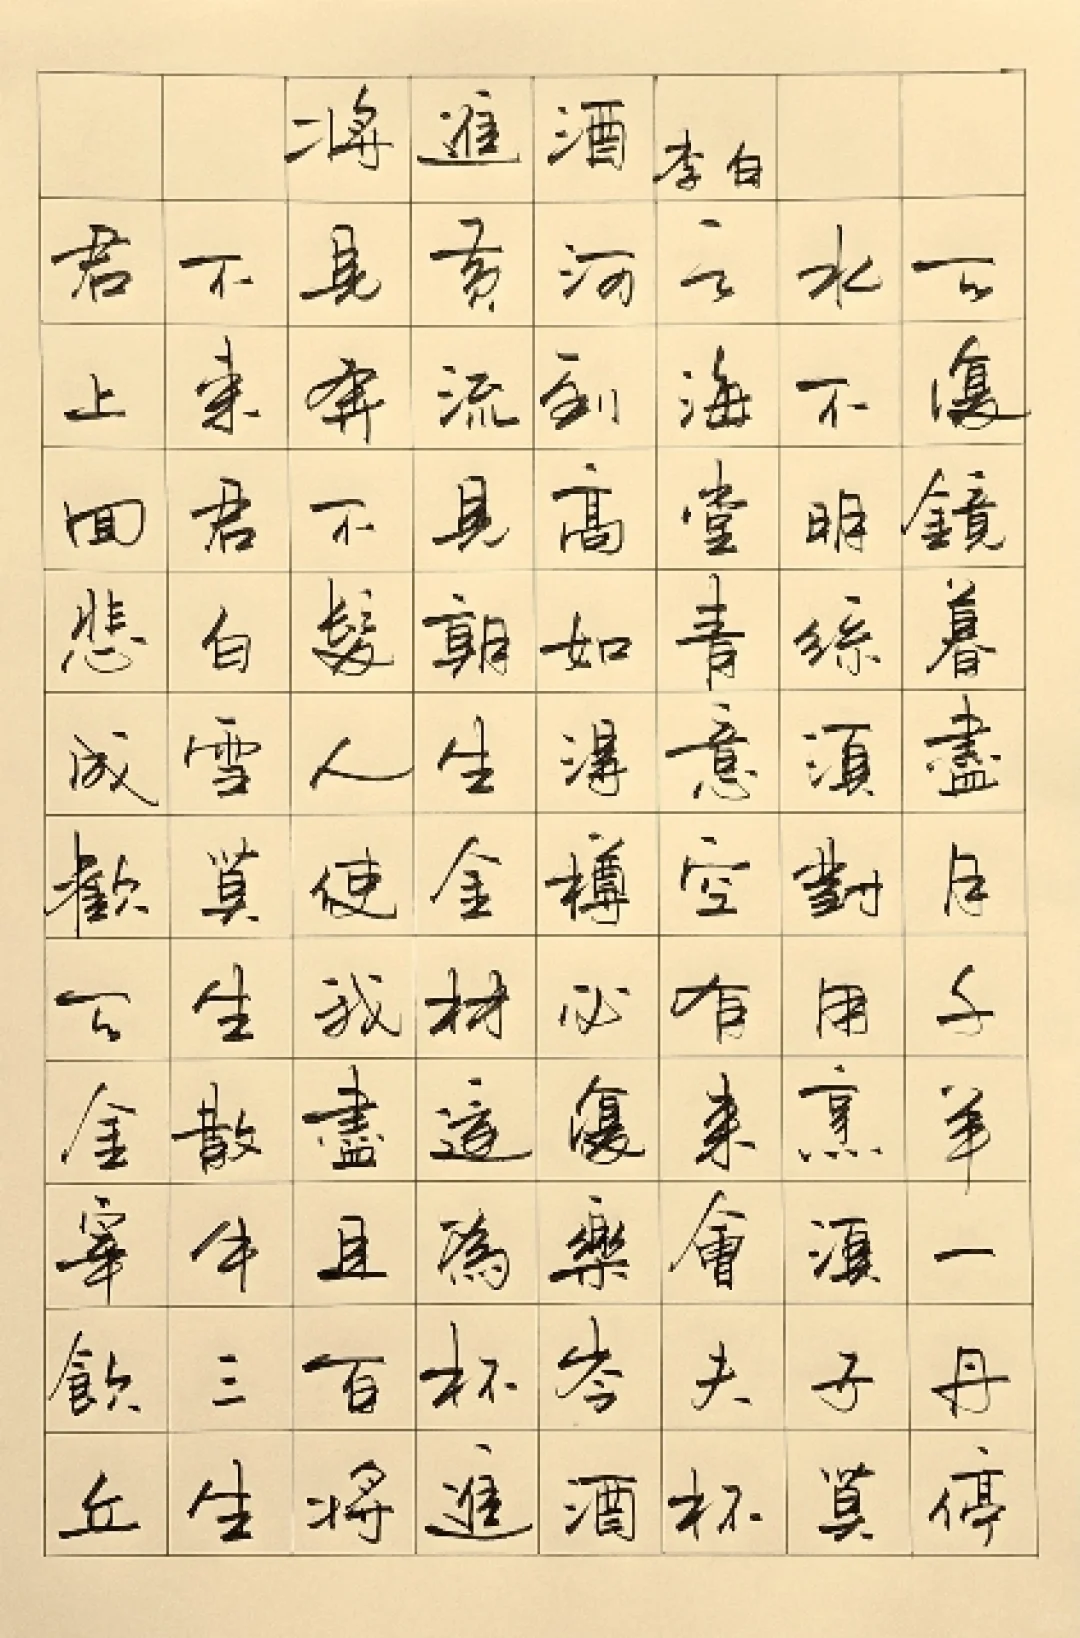 將進酒 李白
君不見黃河之水天
上來奔流到海不復
回君不見高堂明鏡
悲白髮朝如青絲暮
成雪人生得意須盡
歡莫使金樽空對月
天生我材必有用千
金散盡還復來烹羊
宰牛且為樂會須一
飲三百杯岑夫子丹
丘生將進酒杯莫停